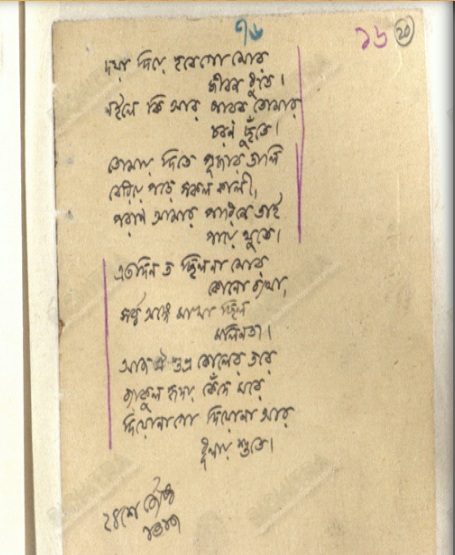 ৭৬
১৬ ২০
দয়া দিয়ে হবে গো মোর
জীবন ধুতে।
নইলে কি আর পারব তোমার
চরণ ছুঁতে।
তোমায় দিতে পূজার ডালি
বেরিয়ে পড়ে সকল কালী,
পরাণ আমার পারিনে তাই
পায়ে থুতে।
এতদিন ত ছিল না মোর
কোনো ব্যথা,
সর্ব্ব অঙ্গে মাখা ছিল
মলিনতা।
আজ ঐ শুভ্র কোলের তরে
ব্যাকুল হৃদয় কেঁদে মরে
দিয়োনা গো দিয়োনা আর
ধূলায় শুতে।
২৪শে চৈত্র